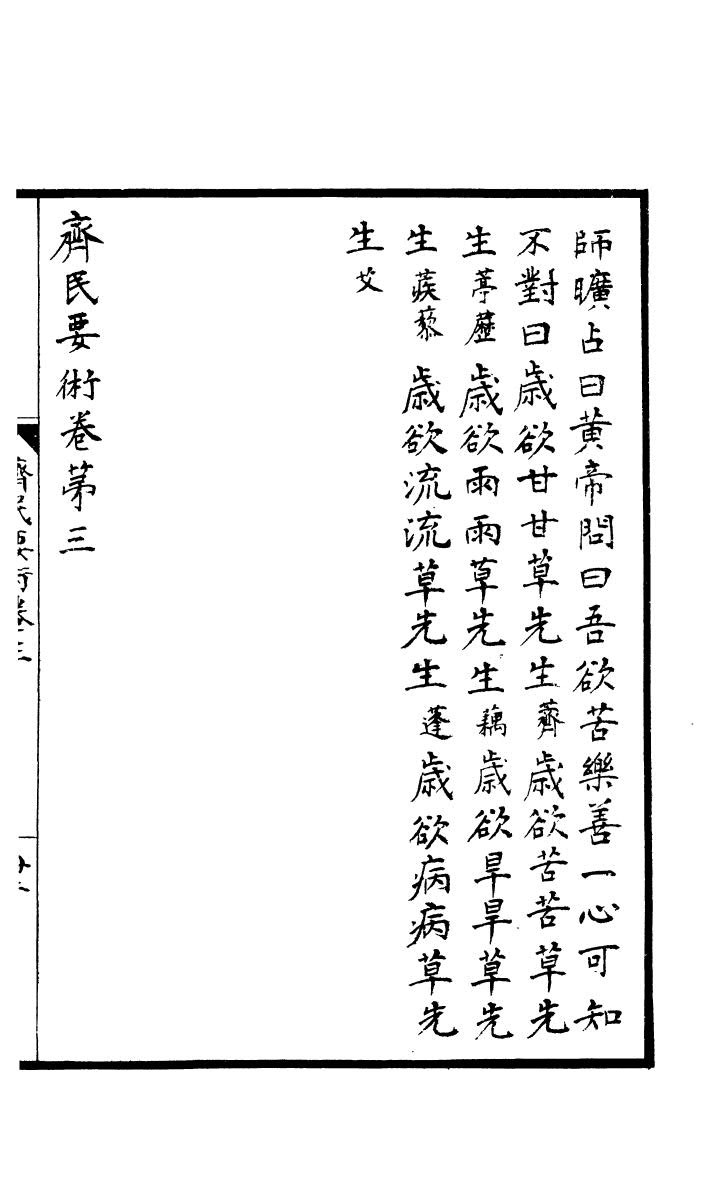 師曠占曰黄帝問曰吾欲苦樂善一心可知
不對曰歳欲甘甘草先生薺歳欲苦苦草先
生葶藶歳欲雨雨草先生藕歳欲旱旱草先
生蒺藜歳欲流流草先生蓬歳欲病病草先
生艾
齊民要術卷第三
齊民要術卷三